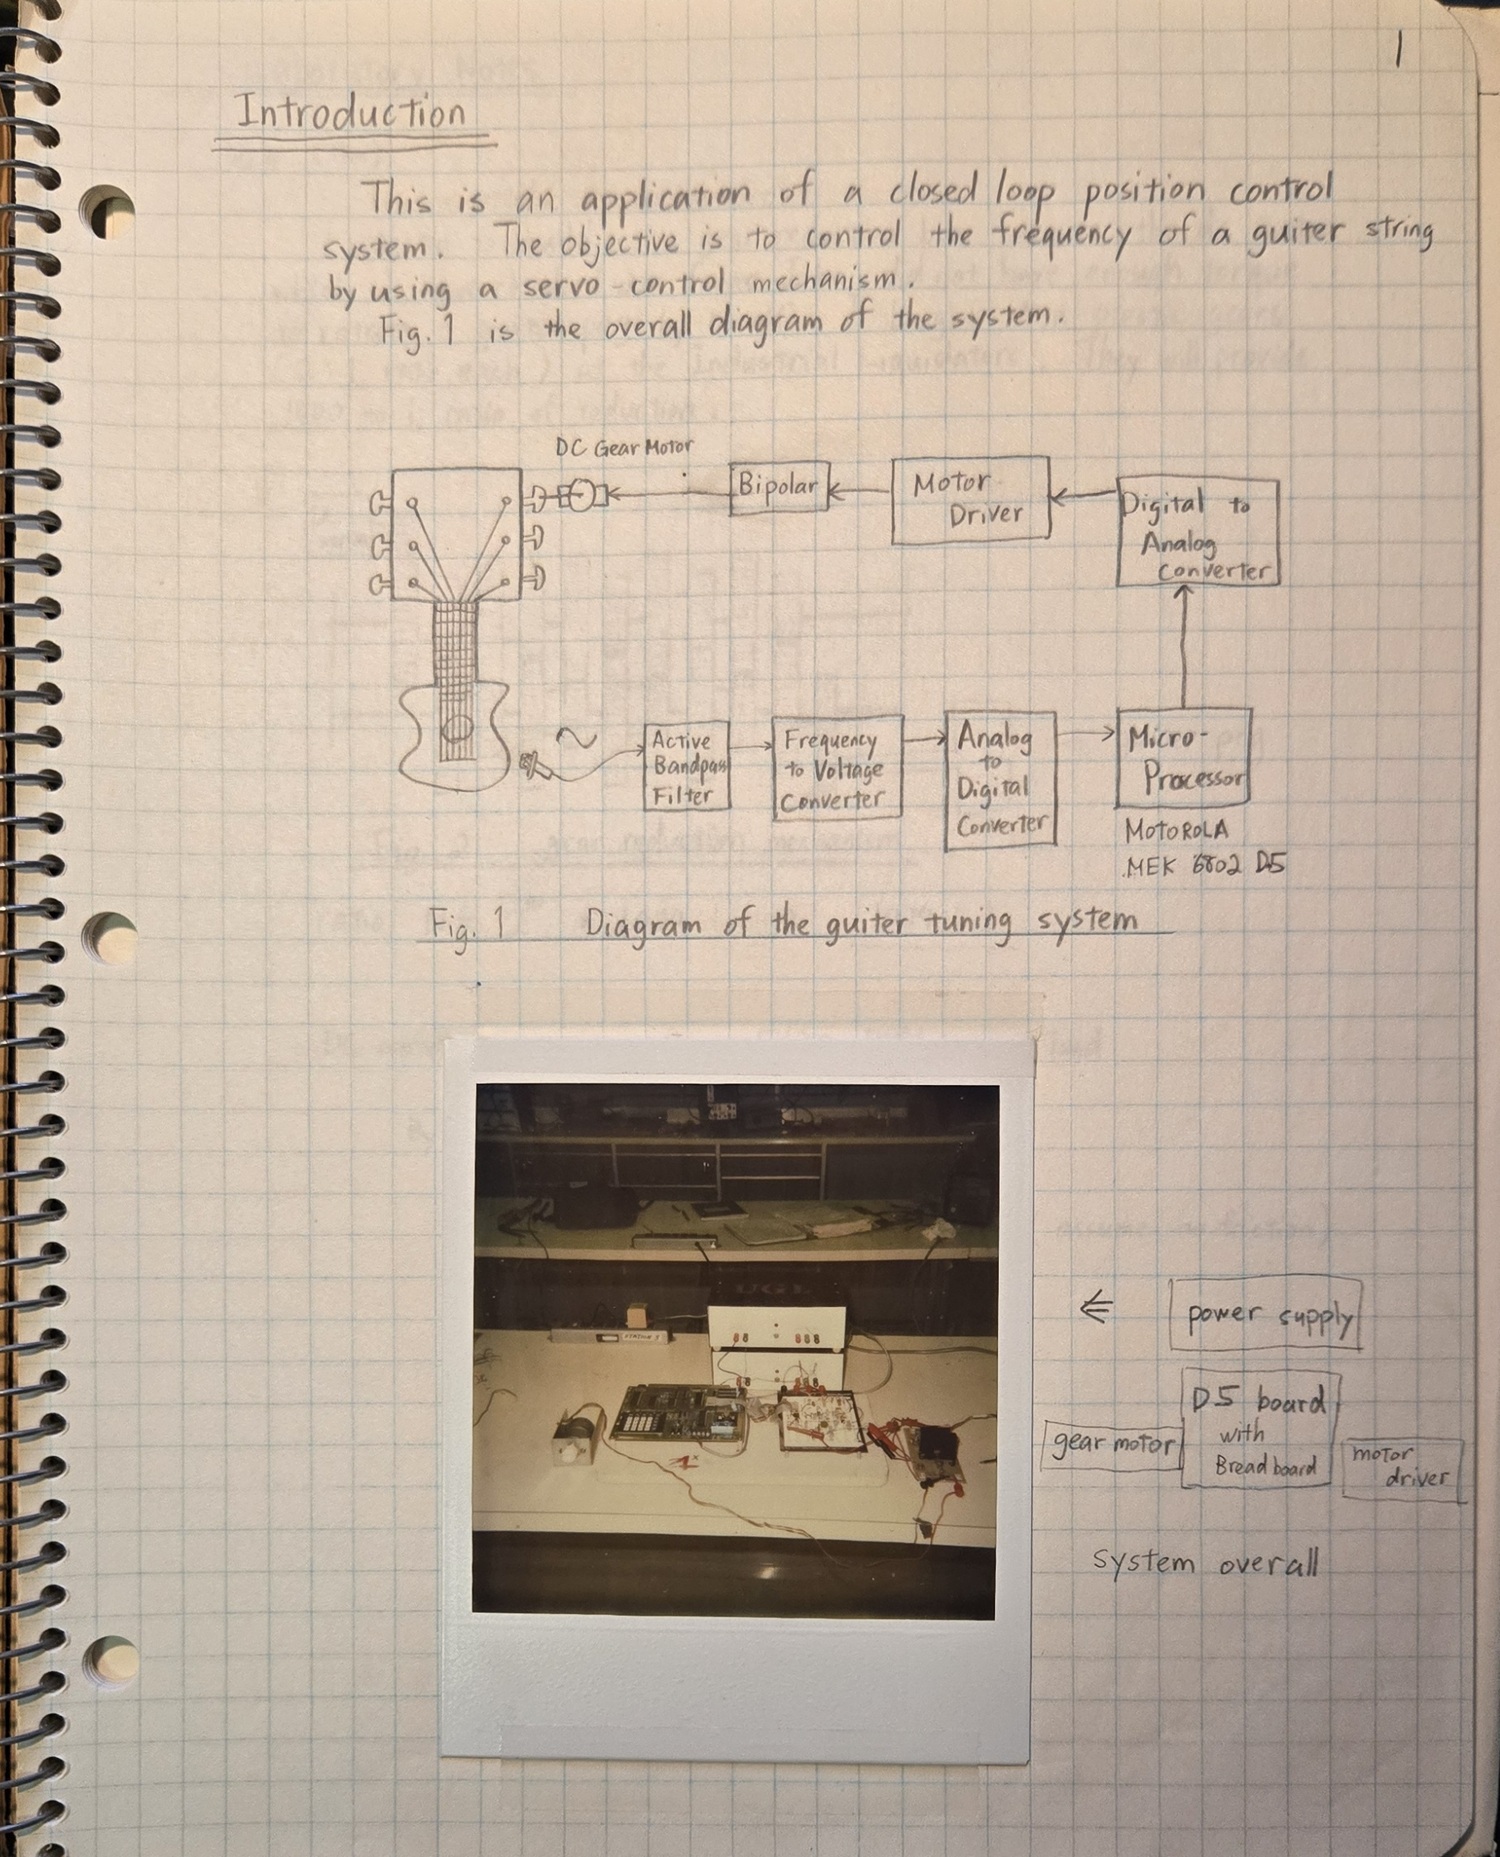 1
Introduction
This is an application of a closed loop position control
system. The objective is to control the frequency of a guiter string
by using a servo-control mechanism.
Fig. 1 is the overall diagram of the system.
DC Gear Motor
Bipolar
Motor
Driver
Digital to
Analog
Converter
Active
Bandpass
Filter
Frequency
to Voltage
Converter
Analog
to
Digital
Converter
Micro-
Processor
MOTOROLA
MEK 6802 D5
Fig. 1 Diagram of the guiter tuning system
power supply
D5 board
with
Breadboard
gear motor
motor
driver
system overall